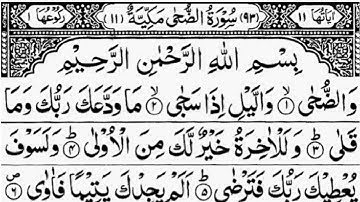 اٰیَاتُهَا ۱۱ (۹۳) سُوْرَةُ الضُّحٰى مَكِّيَّةٌ (۱۱) رُكُوْعُهَا ۱
بِسْمِ اللّٰهِ الرَّحْمٰنِ الرَّحِيْمِ
وَالضُّحٰى ۙ﴿۱﴾ وَالَّيْلِ اِذَا سَجٰى ۙ﴿۲﴾ مَا وَدَّعَكَ رَبُّكَ وَمَا
قَلٰى ؕ﴿۳﴾ وَلَلْاٰخِرَةُ خَيْرٌ لَّكَ مِنَ الْاُوْلٰى ؕ﴿۴﴾ وَلَسَوْفَ
يُعْطِيْكَ رَبُّكَ فَتَرْضٰى ؕ﴿۵﴾ اَلَمْ يَجِدْكَ يَتِيْمًا فَاٰوٰى ۪﴿۶﴾